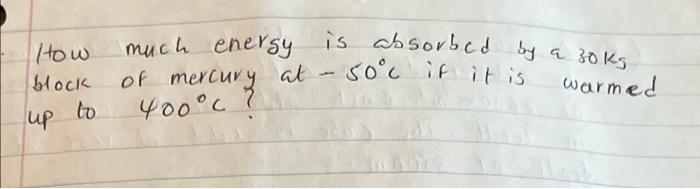 How much energy is absorbed by a 30kg
block of mercury at -50°c if it is warmed
up to 400°c?